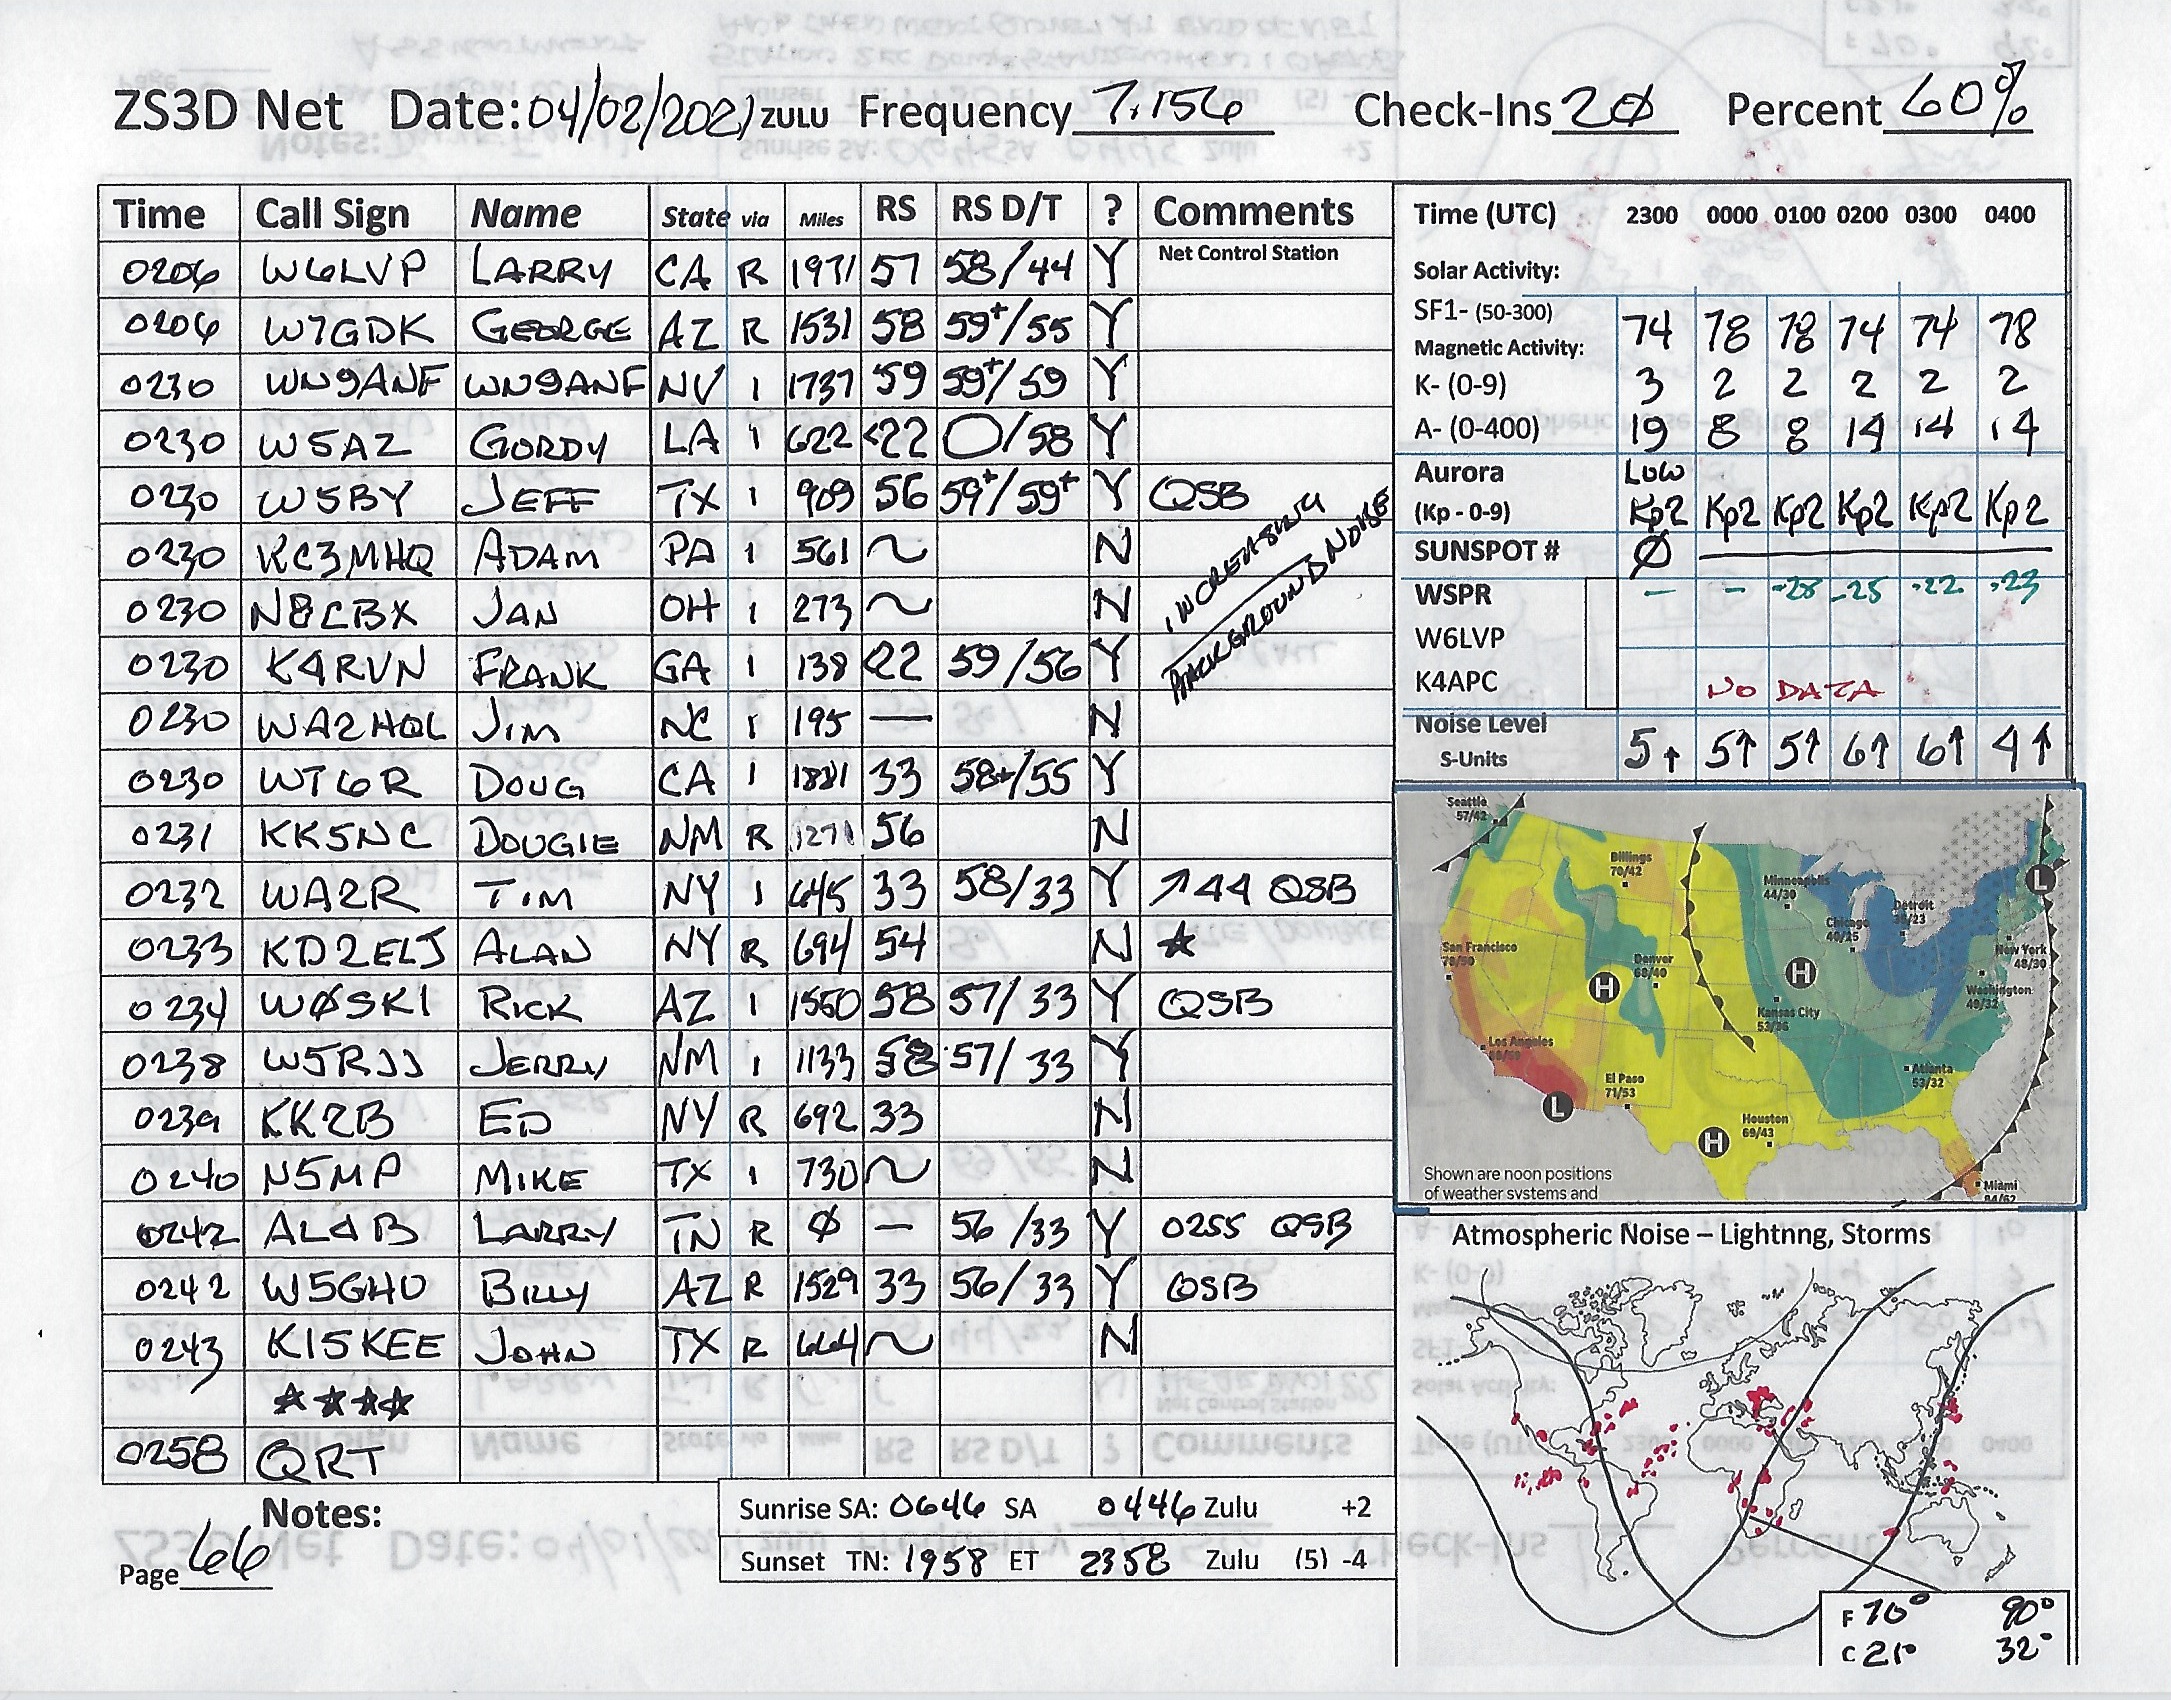 ZS3D Net Date: 04/02/2021 ZULU Frequency 7.156 Check-Ins 2Ø Percent 60%
Time Call Sign Name State via Miles RS RS D/T ? Comments
0206 W6LVP LARRY CA R 1971 57 58/44 Y Net Control Station
0206 W7GDK GEORGE AZ R 1531 58 59+/55 Y
0230 WN9ANF WN9ANF NV 1 1737 59 59+/59 Y
0230 W5AZ GORDY LA 1 622 <22 O/58 Y
0230 W5BY JEFF TX 1 909 56 59+/59+ Y QSB
0230 KC3MHQ ADAM PA 1 561 ~ N
0230 N8CBX JAN OH 1 273 ~ N
INCREASING
BACKGROUND NOISE
0230 K4RVN FRANK GA 1 138 <22 59/56 Y
0230 WA2HQL JIM NC 1 195 — N
0230 WT6R DOUG CA 1 1881 33 58+/55 Y
0231 KK5NC DOUGIE NM R 1271 56 N
0232 WA2R TIM NY 1 645 33 58/33 Y ↗44 QSB
0233 KD2ELJ ALAN NY R 694 54 N ★
0234 WØSKI RICK AZ 1 1550 58 57/33 Y QSB
0238 W5RJJ JERRY NM 1 1133 58 57/33 Y
0239 KK2B ED NY R 692 33 N
0240 N5MP MIKE TX 1 730 ~ N
0242 AL4B LARRY TN R Ø — 56/33 Y 0255 QSB
0242 W5GHU BILLY AZ R 1529 33 56/33 Y QSB
0243 KI5KEE JOHN TX R 664 ~ N
★★★★
0258 QRT
Notes:
Page 66
Sunrise SA: 0646 SA 0446 Zulu +2
Sunset TN: 1958 ET 2358 Zulu (5) -4
Time (UTC) 2300 0000 0100 0200 0300 0400
Solar Activity:
SF1- (50-300) 74 78 78 74 74 78
Magnetic Activity:
K- (0-9) 3 2 2 2 2 2
A- (0-400) 19 8 8 14 14 14
Aurora LOW
(Kp - 0-9) Kp2 Kp2 Kp2 Kp2 Kp2 Kp2
SUNSPOT # Ø
WSPR — — -28 -25 -22 -23
W6LVP
K4APC NO DATA
Noise Level
S-Units 5↑ 5↑ 5↑ 6↑ 6↑ 4↑
Seattle
57/42
Billings
70/42
Minneapolis
44/30
Detroit
Chicago
40/25
San Francisco
Denver
68/40
New York
48/30
H
H
L
Washington
49/32
Kansas City
53/36
Los Angeles
El Paso
71/53
Atlanta
53/32
L
Houston
69/43
H
Miami
84/62
Shown are noon positions
of weather systems and
Atmospheric Noise – Lightnng, Storms
F 70° 90°
C 21° 32°